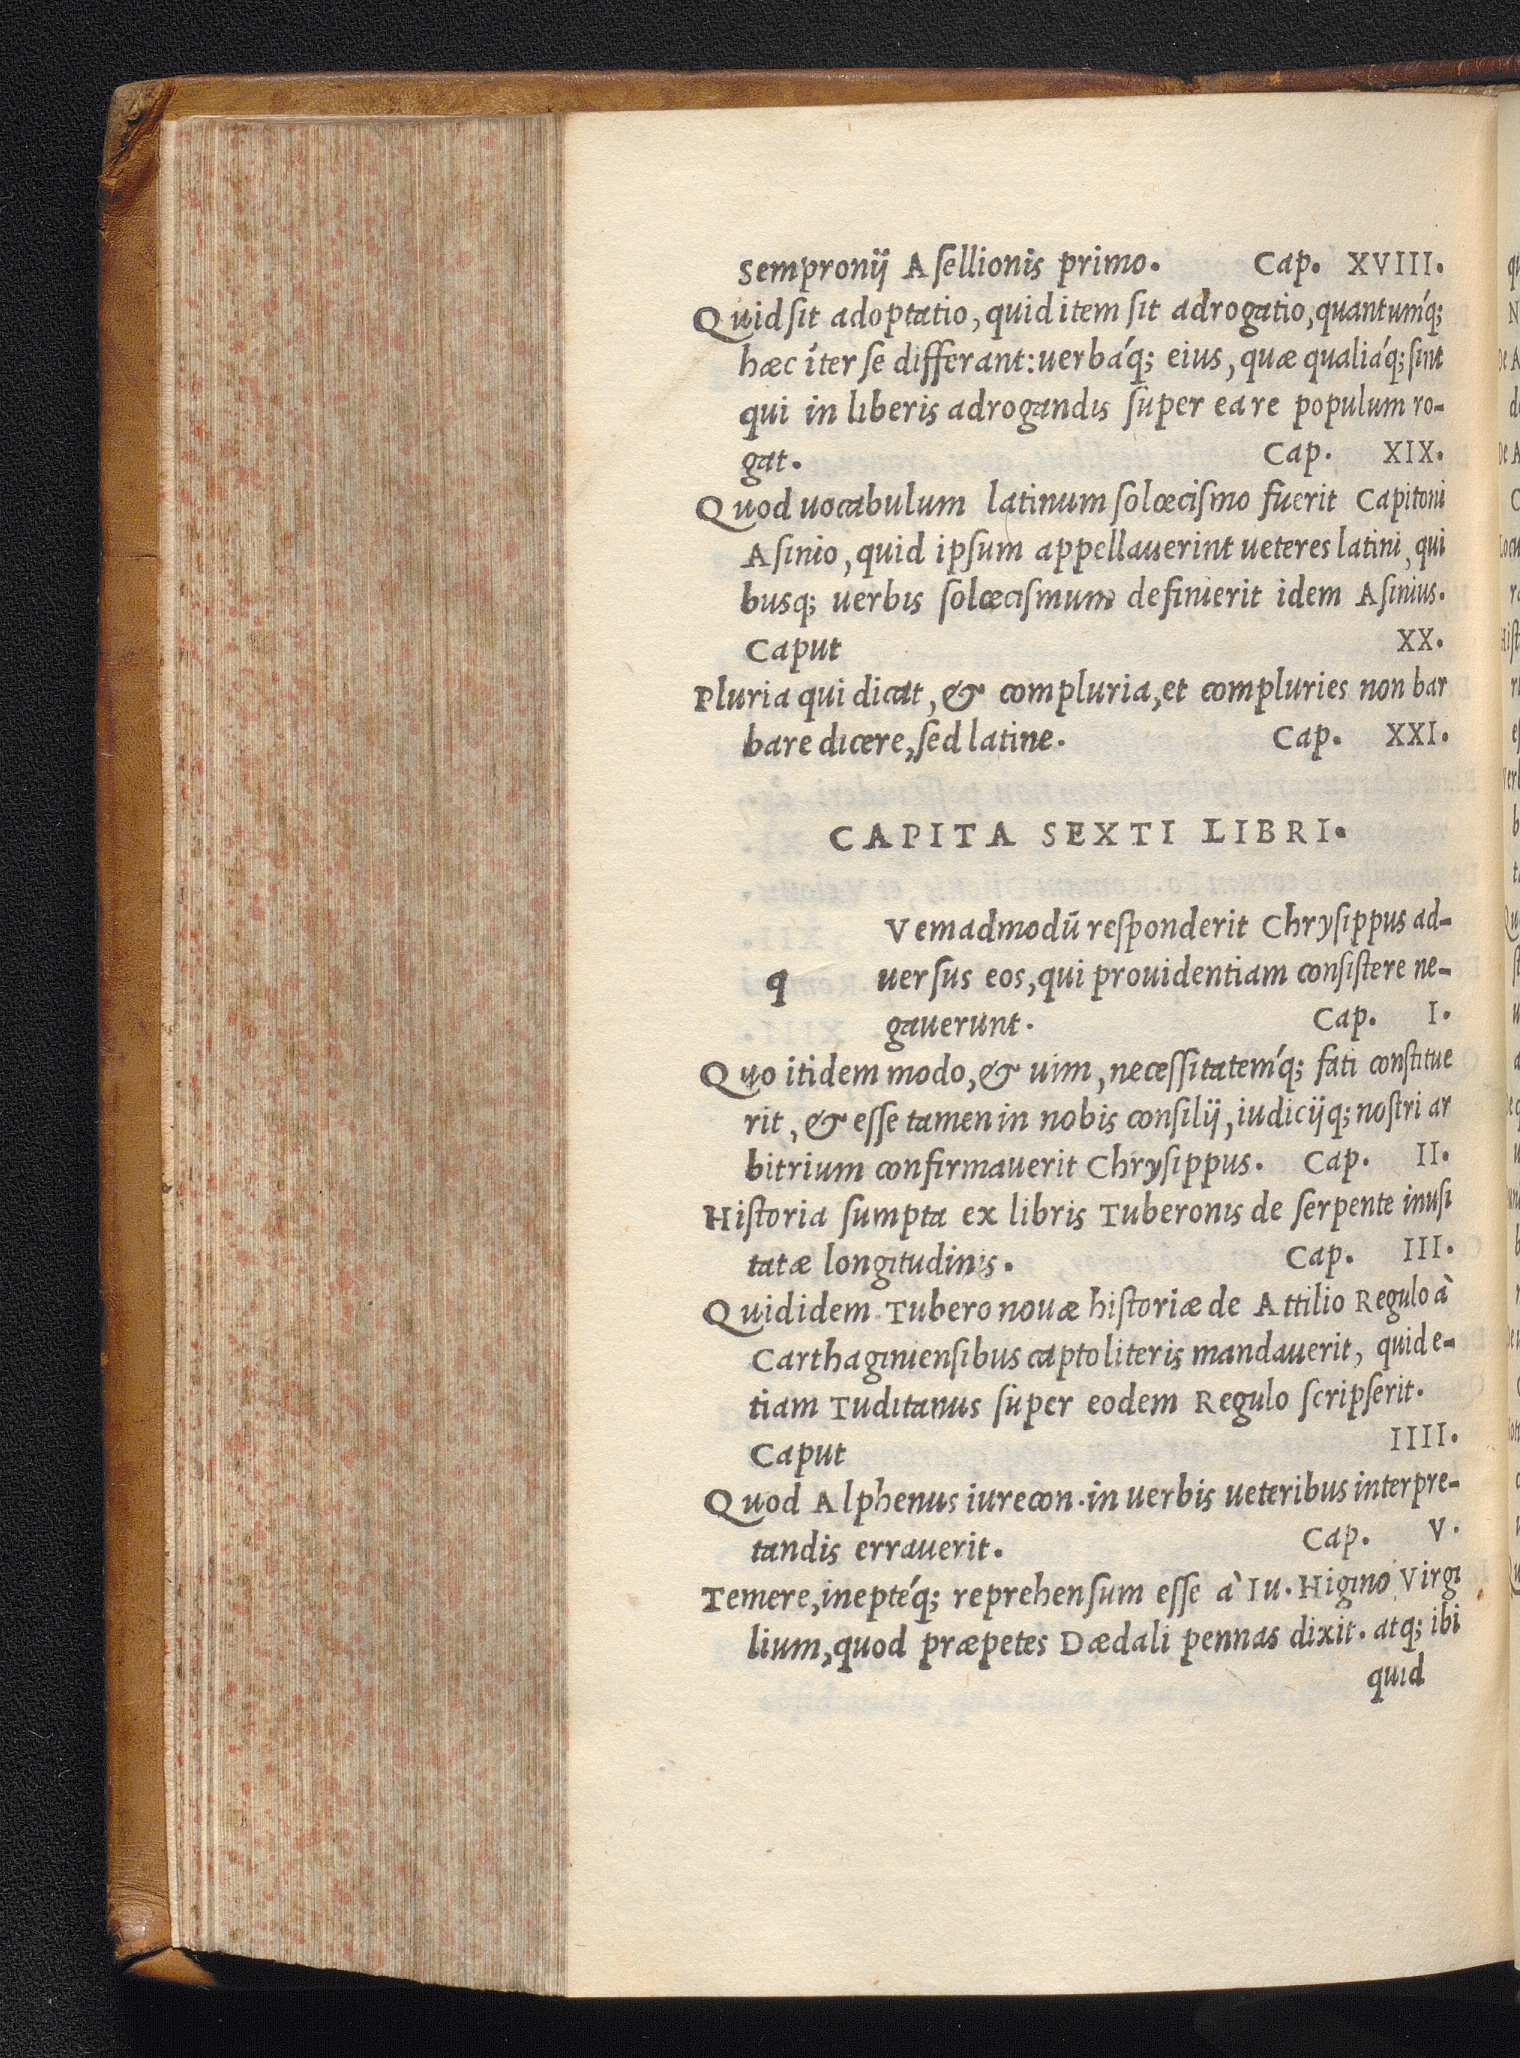 Sempronij Asellionis primo. Cap. XVIII.
Quid sit adoptatio, quid item sit adrogatio, quantumq́;
hæc íter se differant: uerbáq; eius, quæ qualiáq; sint
qui in liberis adrogandis super ea re populum ro-
gat. Cap. XIX.
Quod uocabulum latinum solœcismo fuerit Capitoni
Asinio, quid ipsum appellauerint ueteres latini, qui
busq; uerbis solœcismum definierit idem Asinius.
Caput XX.
Pluria qui dicat, & compluria, et compluries non bar
bare dicere, sed latine. Cap. XXI.
CAPITA SEXTI LIBRI.
q Vemadmodū responderit Chrysippus ad-
uersus eos, qui prouidentiam consistere ne-
gauerunt. Cap. I.
Quo itidem modo, & uim, necessitatemq́; fati constitue
rit, & esse tamen in nobis consilij, iudicijq; nostri ar
bitrium confirmauerit Chrysippus. Cap. II.
Historia sumpta ex libris Tuberonis de serpente inusi
tatæ longitudinis. Cap. III.
Quid idem Tubero nouæ historiæ de Attilio Regulo à
Carthaginiensibus capto literis mandauerit, quid e-
tiam Tuditanus super eodem Regulo scripserit.
Caput IIII.
Quod Alphenus iurecon. in uerbis ueteribus interpre-
tandis errauerit. Cap. V.
Temere, inepteq́; reprehensum esse à Iu. Higino Virgi
lium, quod præpetes Dædali pennas dixit. atq; ibi
quid